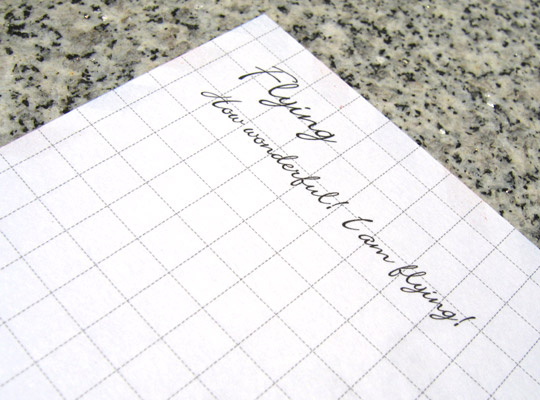 Flying
How wonderful! I am flying!